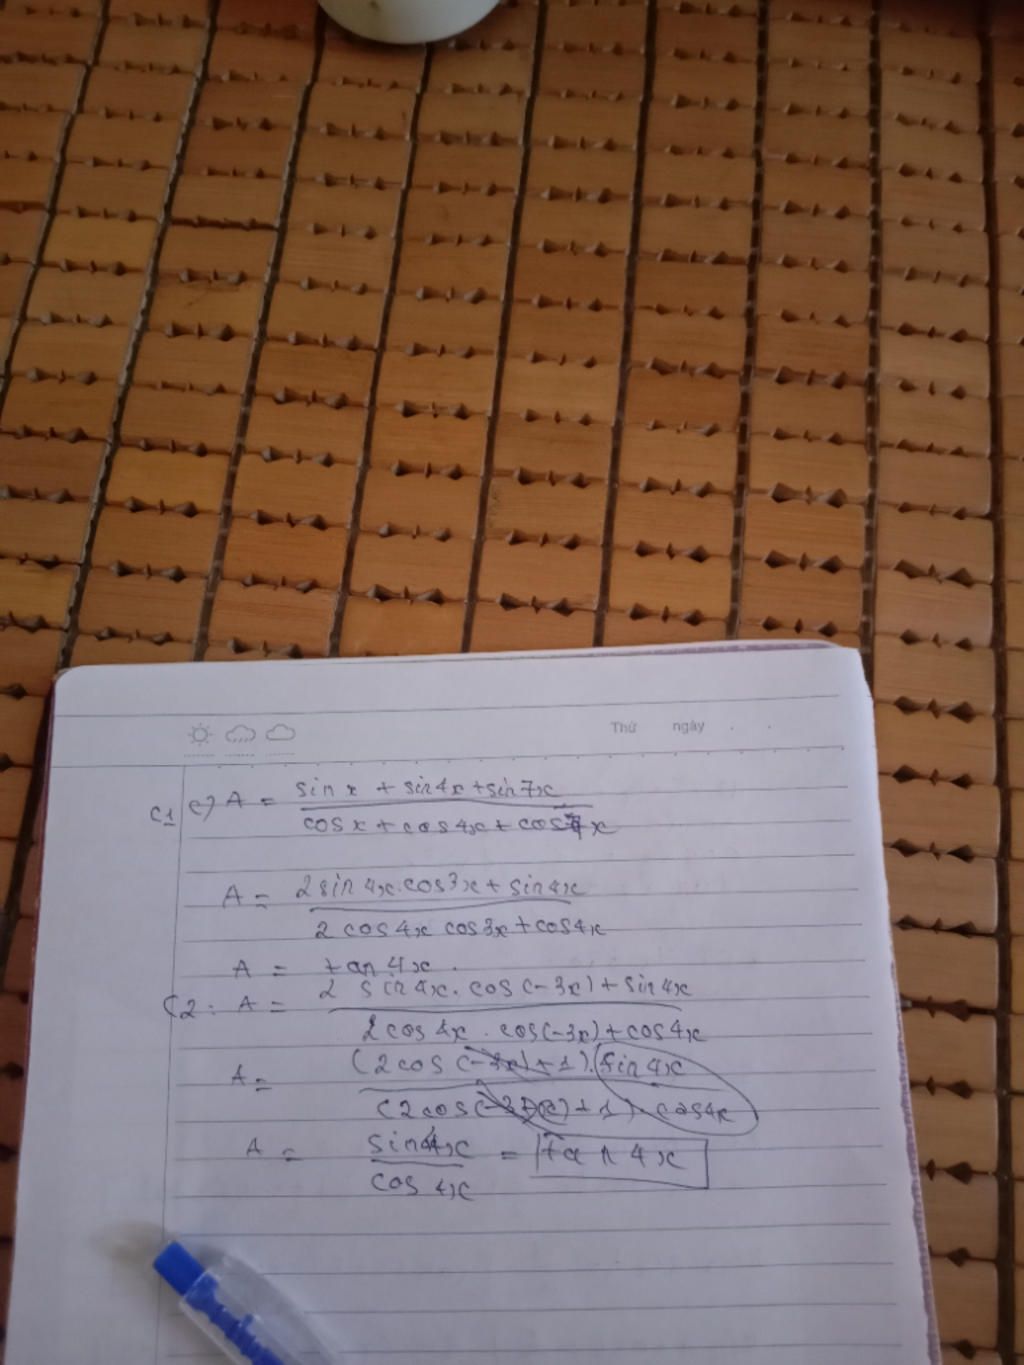 Thứ ngày . .
C1 c) A = (sin x + sin4x + sin7x) / (cos x + cos4x + cos7x)
A = (2 sin 4x.cos3x + sin4x) / (2 cos4x cos3x + cos4x)
A = tan 4x.
C2: A = (2 sin 4x. cos (-3x) + sin 4x) / (2 cos 4x . cos(-3x) + cos4x)
A = ((2 cos (-3x) + 1).sin 4x) / ((2 cos(-3x) + 1). cos4x)
A = sin4x / cos 4x = tan 4x